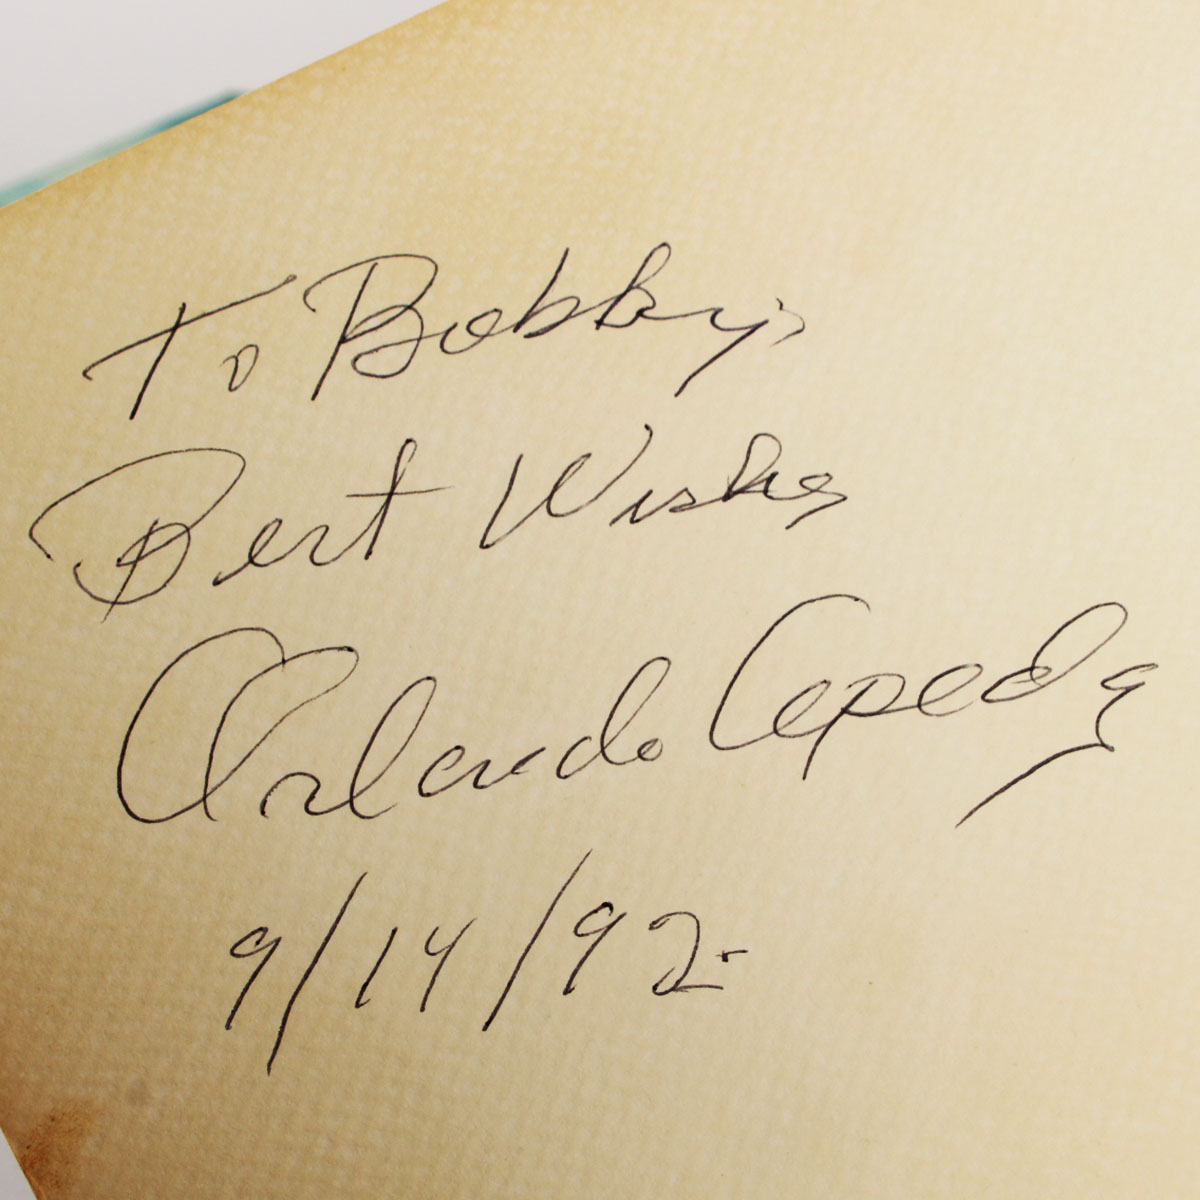 To Bobby,
Best Wishes
Orlando Cepeda
9/14/92